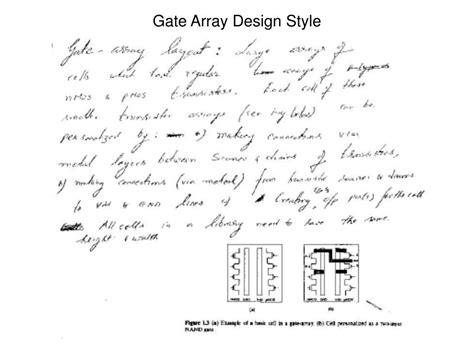 Gate Array Design Style
Gate-array layout: Large arrays of
cells what have regular arrays of
nMOS & pMOS transistors. Each cell of these
small transistor arrays (see fig below) can be
personalized by: a) making connections via
metal layers between sources & drains of transistors,
b) making connections (via metal) from transistor sources & drains
to Vdd & GND lines c) Creating i/p o/p ports) for the cell
All cells in a library need to have the same
height & width
(a)
(b)
Figure 1.3 (a) Example of a basic cell in a gate-array. (b) Cell personalized as a two-input
NAND gate.